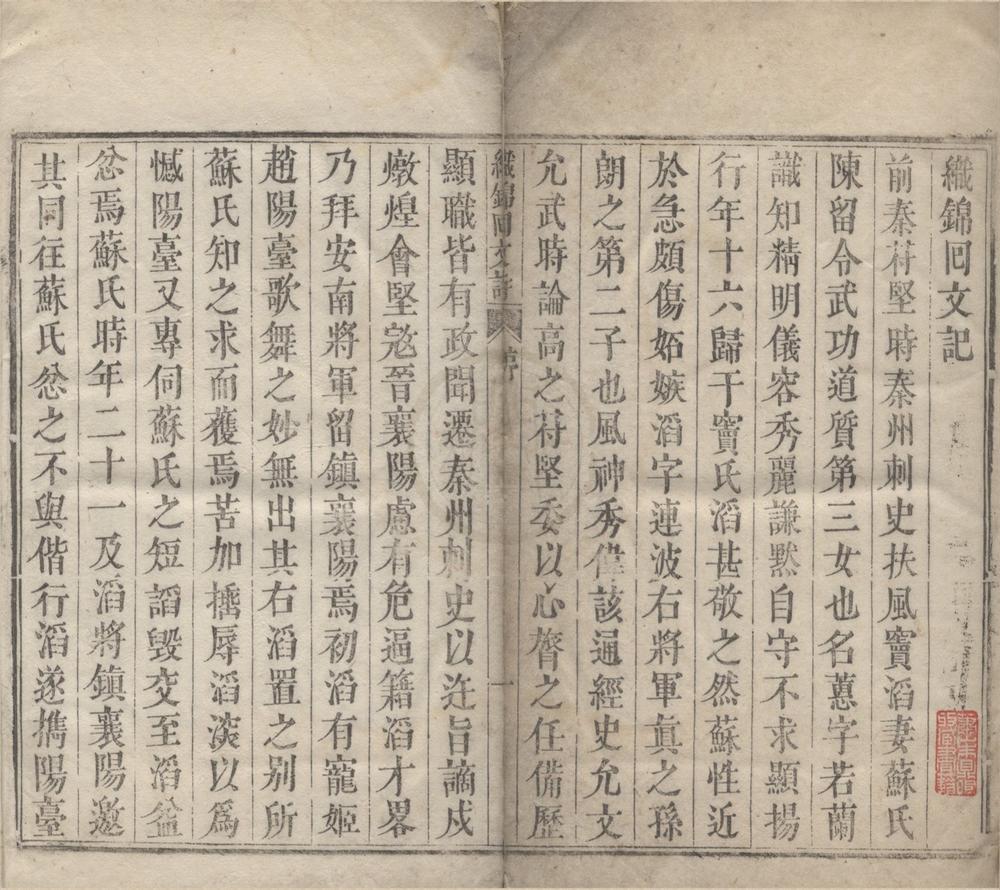 織錦回文記
前秦苻堅時秦州刺史扶風竇滔妻蘇氏
陳留令武功道質第三女也名蕙字若蘭
識知精明儀容秀麗謙默自守不求顯揚
行年十六歸于竇氏滔甚敬之然蘇性近
於急頗傷妬嫉滔字連波右將軍眞之孫
朗之第二子也風神秀偉該通經史允文
允武時論高之苻堅委以心膂之任備歷
織錦回文詩
序
一
顯職皆有政聞遷秦州刺史以迕旨謫戍
燉煌會堅寇晉襄陽慮有危逼籍滔才畧
乃拜安南將軍留鎮襄陽焉初滔有寵姬
趙陽臺歌舞之妙無出其右滔置之別所
蘇氏知之求而獲焉苦加捶辱滔深以爲
憾陽臺又專伺蘇氏之短謟毀交至滔益
忿焉蘇氏時年二十一及滔將鎮襄陽邀
其同往蘇氏忿之不與偕行滔遂攜陽臺